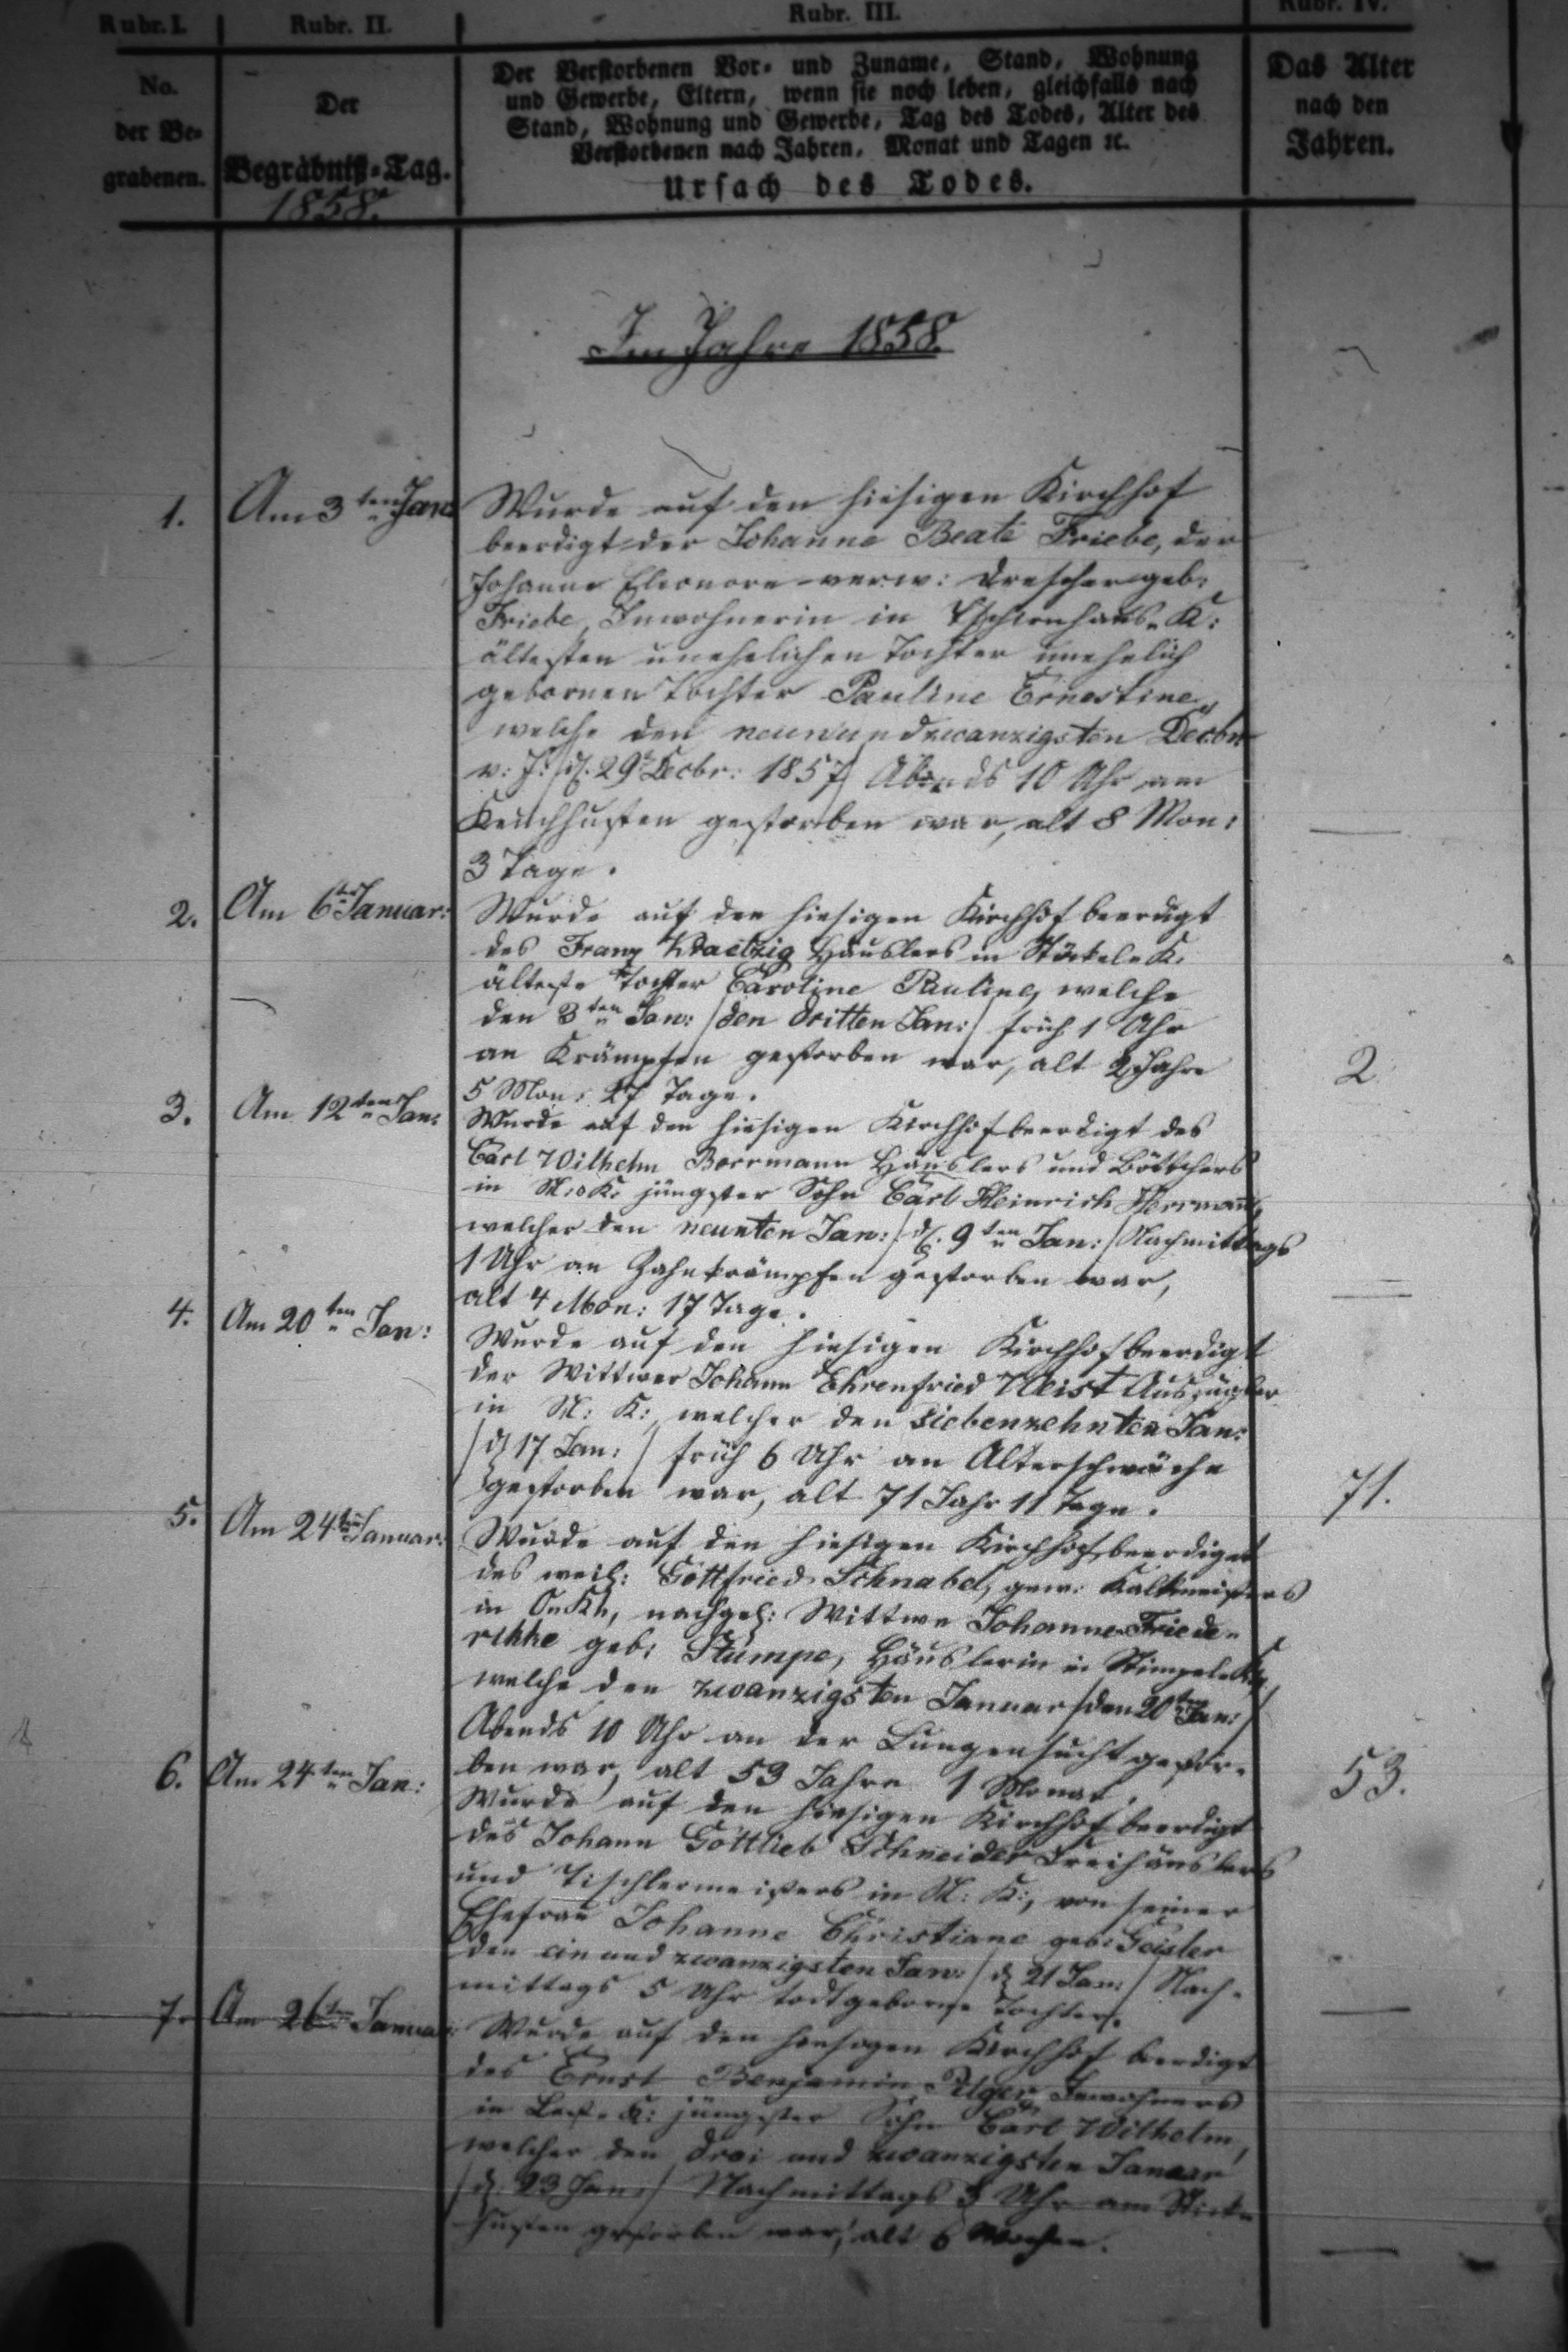 Rubr. I. Rubr. II. Rubr. III. Rubr. IV.
No. der Be- grabenen.
Der Begräbniß-Tag. 1858.
Der Verstorbenen Vor- und Zuname, Stand, Wohnung
und Gewerbe, Eltern, wenn sie noch leben, gleichfalls nach
Stand, Wohnung und Gewerbe, Tag des Todes, Alter des
Verstorbenen nach Jahren, Monat und Tagen ꝛc.
Ursach des Todes.
Das Alter nach den Jahren.
Im Jahre 1858.
1. Am 3ten Jan:
Wurde auf den hiesigen Kirchhof
beerdigt der Johanne Beate Friebe, der
Johanne Eleonore verw: Drescher geb:
Friebe, Inwohnerin in K:
ältesten unehelichen Tochter unehelich
gebornen Tochter Pauline Ernestine,
welche den neunundzwanzigsten Decbr
v: J: /d. 29t Decbr: 1857/ Abends 10 Uhr am
Keuchhusten gestorben war, alt 8 Mon:
3 Tage.
2. Am 6ten Januar:
Wurde auf den hiesigen Kirchhof beerdigt
des Franz Häuslers in K.
älteste Tochter Caroline Pauline, welche
den 3ten Jan: /den dritten Jan:/ früh 1 Uhr
an Krämpfen gestorben war, alt 2 Jahre
5 Mon: 27 Tage.
2
3. Am 12ten Jan:
Wurde auf den hiesigen Kirchhof beerdigt des
Carl Wilhelm Borrmann Häuslers und Böttchers
in K: jüngster Sohn Carl Heinrich Herrmann,
welcher den neunten Jan: /d. 9ten Jan:/ Nachmittags
1 Uhr an Zahnkrämpfen gestorben war,
alt 4 Mon: 17 Tage.
4. Am 20ten Jan:
Wurde auf den hiesigen Kirchhof beerdigt
der Wittwer Johann Ehrenfried Weist Auszügler
in M: K:, welcher den siebenzehnten Jan:
/d 17 Jan:/ früh 6 Uhr an Alterschwäche
gestorben war, alt 71 Jahr 11 Tage.
71.
5. Am 24ten Januar:
Wurde auf den hiesigen Kirchhof beerdiget
des weil: Gottfried Schnabel, gew:
in nachgel: Wittwe Johanne Friede-
rikke geb: Stumpe, Häuslerin in
welche den zwanzigsten Januar /den 20ten Jan:/
Abends 10 Uhr an der Lungensucht gestor-
ben war, alt 53 Jahre 1 Monat.
53.
6. Am 24ten Jan:
Wurde auf den hiesigen Kirchhof beerdigt
des Johann Gottlieb Schneider Freihäuslers
und Tischlermeisters in M: K:, von seiner
Ehefrau Johanne Christiane geb: Geisler
den ein und zwanzigsten Jan: /d 21 Jan:/ Nach-
mittags 5 Uhr todtgeborne Tochter.
7. Am 26ten Januar:
Wurde auf den hiesigen Kirchhof beerdigt
des Ernst Benjamin Inwohners
in K: jüngster Sohn Carl Wilhelm,
welcher den drei und zwanzigsten Januar
/d. 23 Jan:/ Nachmittags Uhr am Stick-
husten gestorben war, alt 6 Wochen.